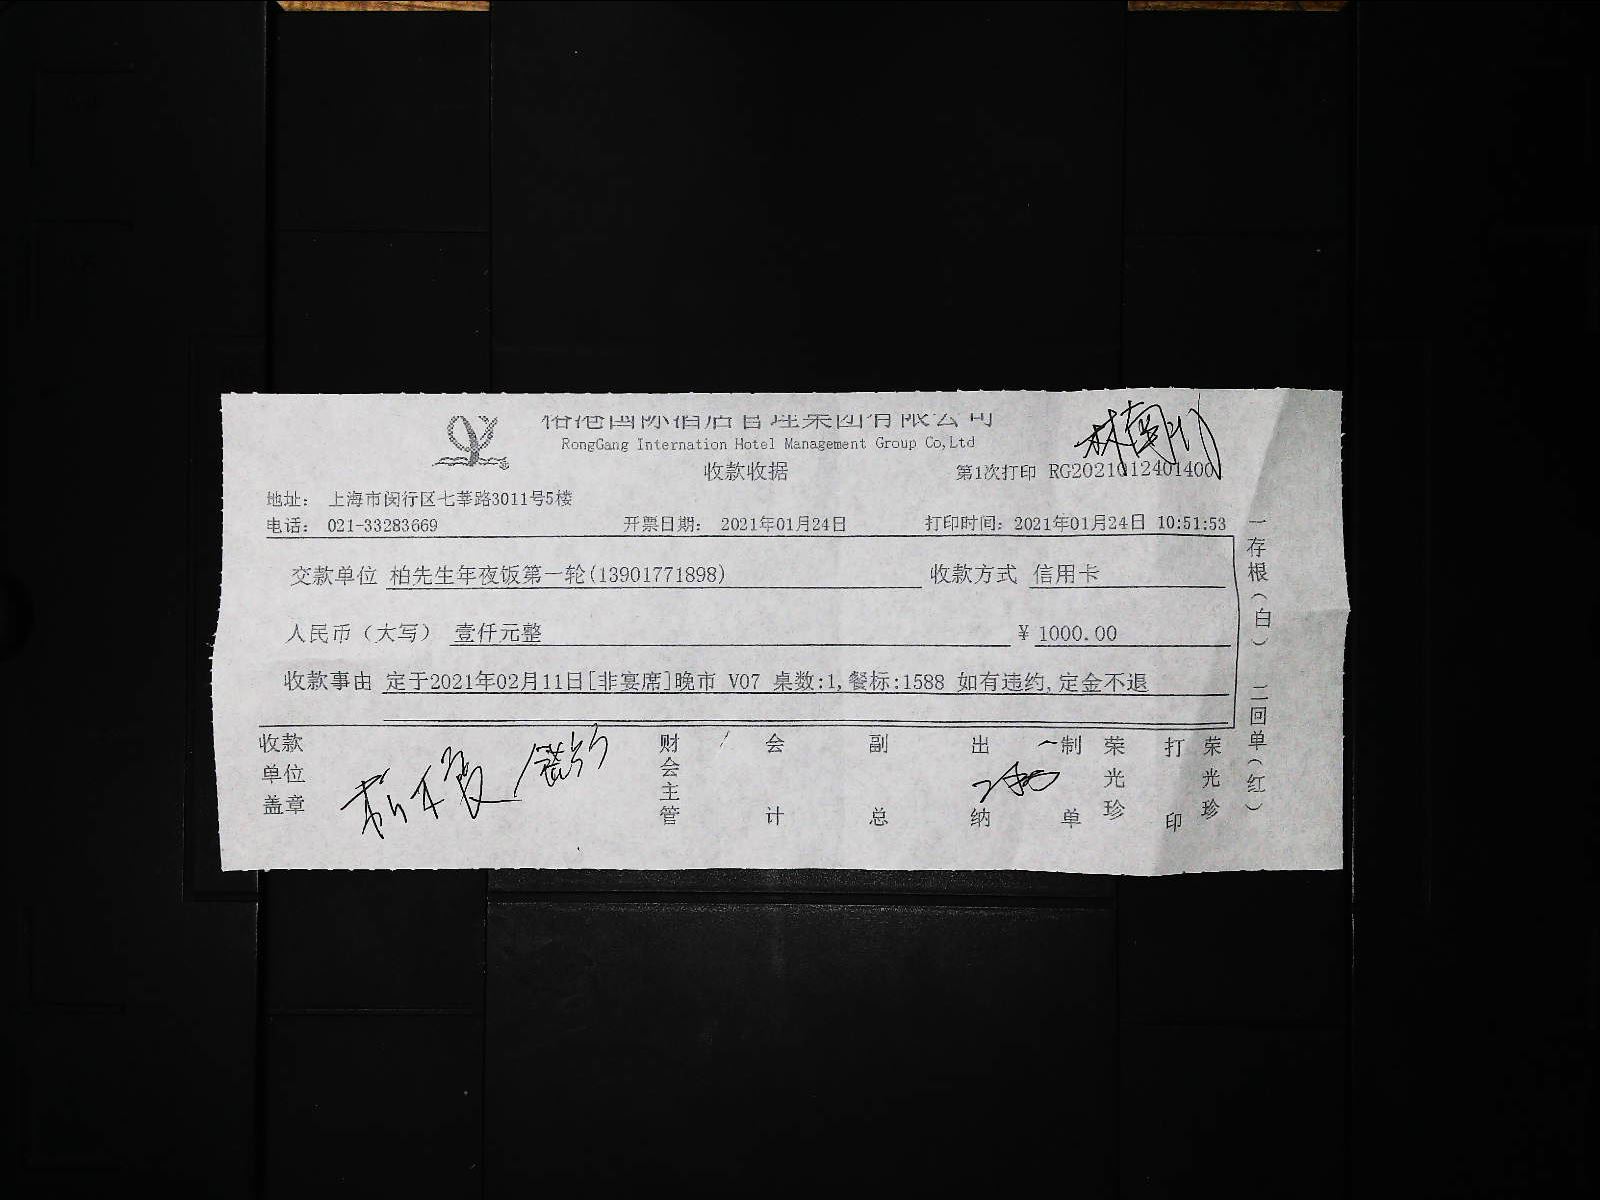 国际酒店管理集团有限公司
RongGang Internation Hotel Management Group Co,Ltd
收款收据
第1次打印 RG2021012401400
地址： 上海市闵行区七莘路3011号5楼
电话： 021-33283669 开票日期： 2021年01月24日 打印时间：2021年01月24日 10:51:53
交款单位 柏先生年夜饭第一轮(13901771898) 收款方式 信用卡
人民币（大写） 壹仟元整 ￥ 1000.00
收款事由 定于2021年02月11日[非宴席]晚市 V07 桌数:1,餐标:1588 如有违约,定金不退
收款单位盖章 财会主管 会计 副总 出纳 制单 荣光珍 打印 荣光珍
一存根（白） 二回单（红）